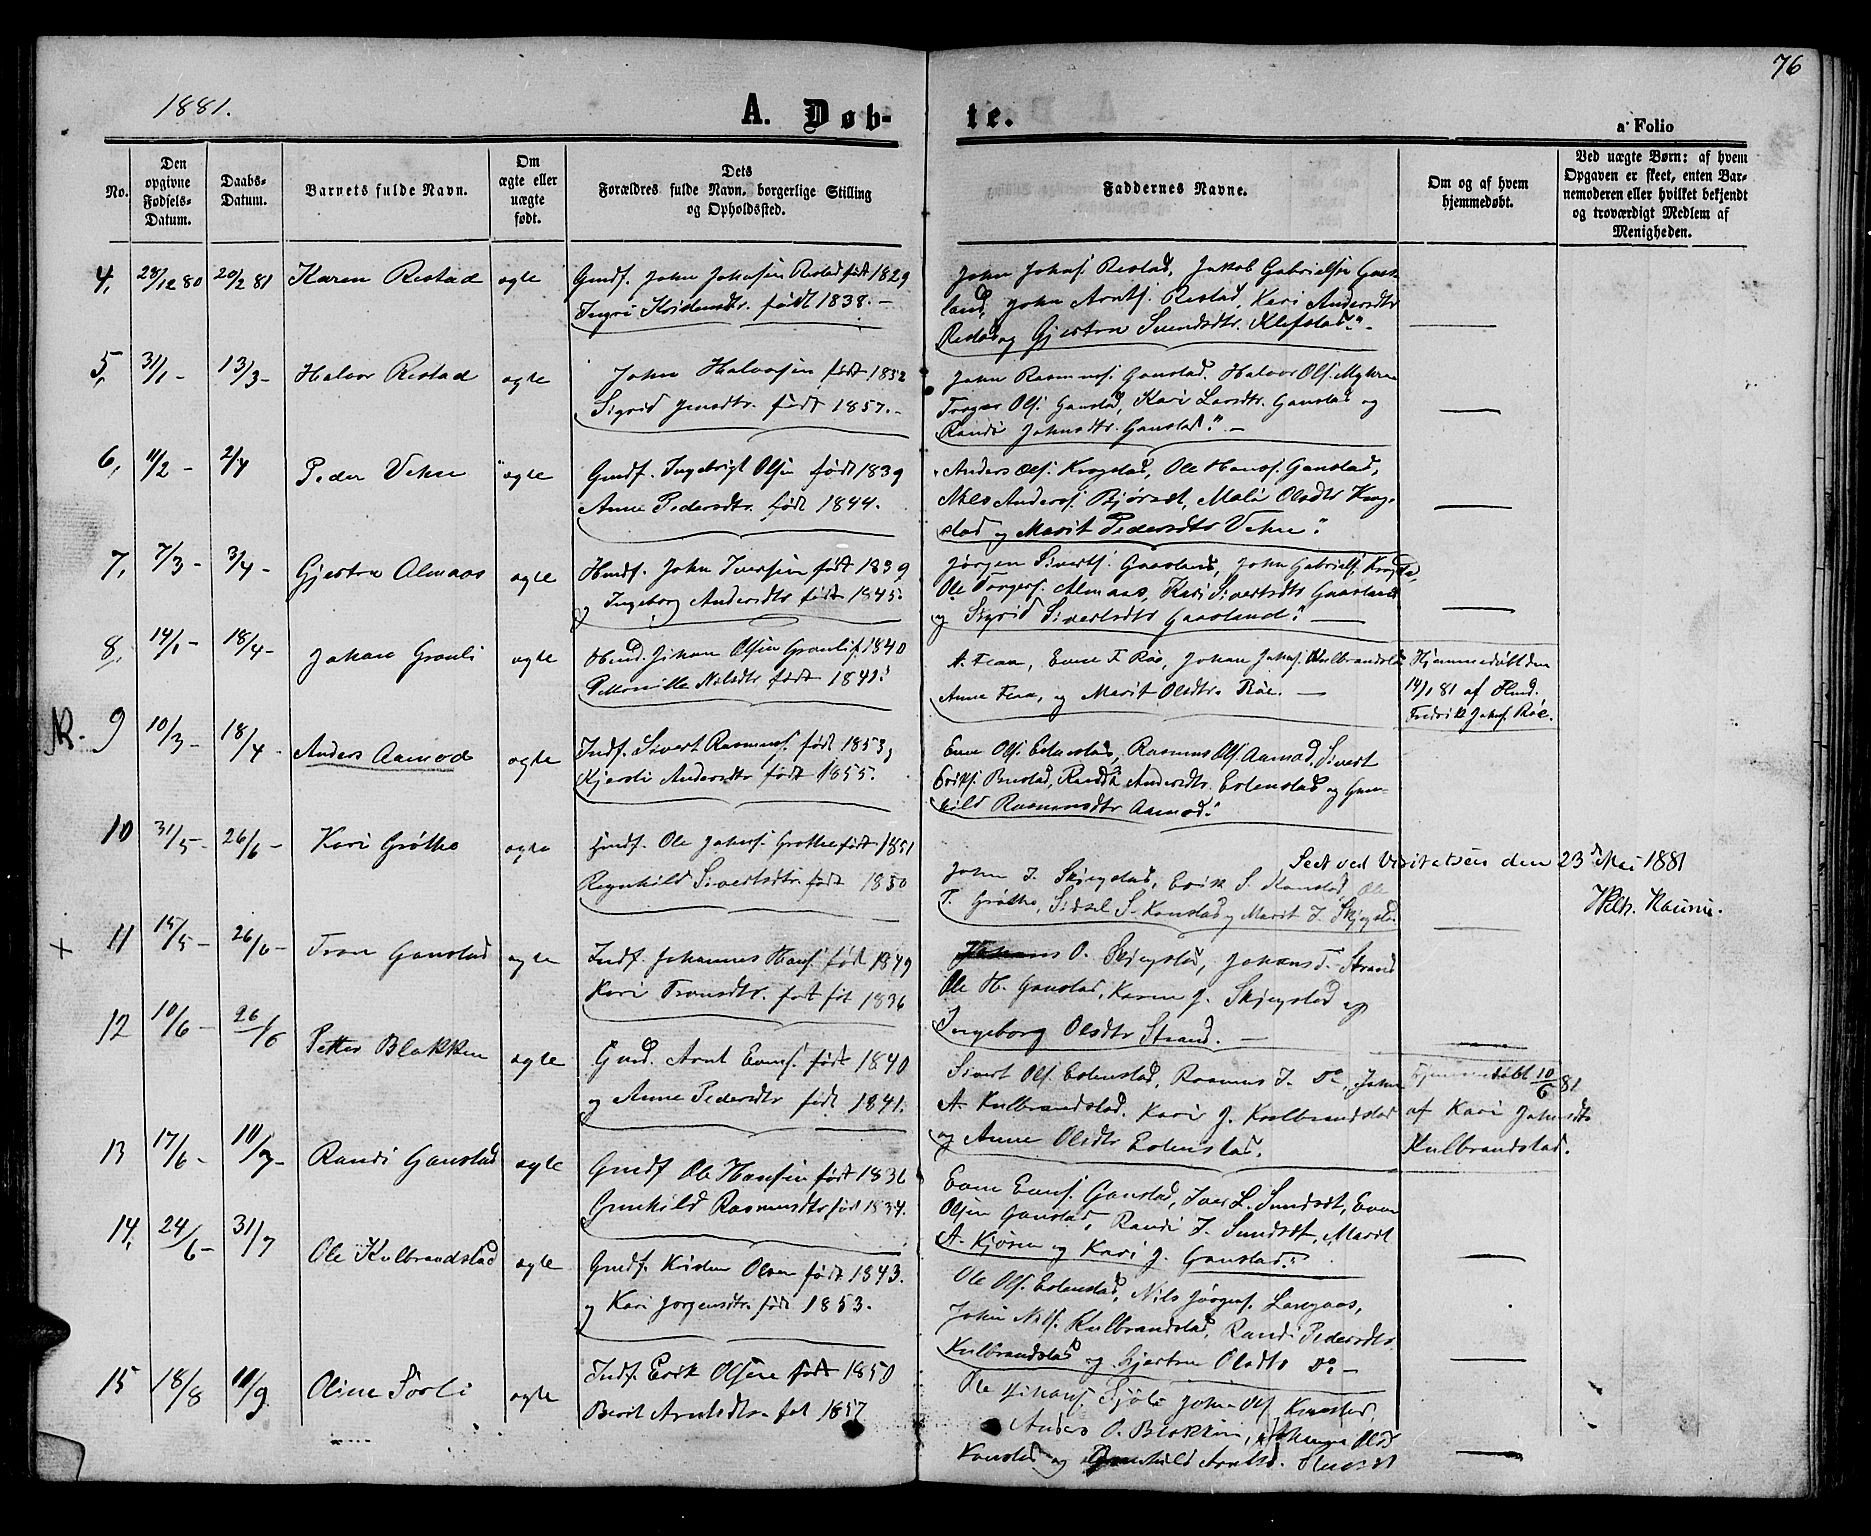 76
1881.
A. Døbte.
a' Folio
No.
Den opgivne Fødsels-Datum.
Daabs-Datum.
Barnets fulde Navn.
Om ægte eller uægte født.
Dets Forældres fulde Navn, borgerlige Stilling og Opholdssted.
Faddernes Navne.
Om og af hvem hjemmedøbt.
Ved uægte Børn: af hvem Opgaven er skeet, enten Barnemoderen eller hvilket bekjendt og troværdigt Medlem af Menigheden.
4, 28/12 80 20/2 81 Karen Restad ægte
Gmdf. John Johnsen Restad født 1829
født 1838.
John Johnsf. Restad, Jakob Gabrielsen Gaas-
land, John Arntsf. Restad, Kari Andersdtr
Restad og Gjertru Svendsdtr. Klefstad."
5, 31/1 - 13/3 - Halvor Restad ægte
John Halvorsen født 1852
Sigrid Jensdtr. født 1857.
John Rasmusf. Gaustad, Halvor Olsf.
Olsf. Gaustad, Kari Larsdtr. Gaustad og
Randi Johnsdtr. Gaustad." -
6, 11/2 - 2/4 Peder Vehn ægte
Gmdf. Ingebrigt Olsen født 1839
Anne Pedersdtr. født 1844.
Anders Olsf. Krogstad, Ole Hansf. Gaustad,
Nils Andersf. Malè Olsdtr Krog-
stad og Marit Pedersdtr Vehn."
7, 7/3 - 3/4 - Gjertru Almaas ægte
Hmdf. John Iversen født 1839
og Ingeborg Andersdtr født 1845.
Jørgen Sivertsf. Gaasland, John Gabrielsf.
Ole Torgersf. Almaas, Kari Sivertsdtr Gaasland
og Sigrid Sivertsdtr Gaasland."
8, 14/1 - 18/4 - Johan Gronli ægte
Johan Olsen Gronli f 1840
Nilsdtr født 1841.
A. Flaa, Even F. Røe, Johan Johnsf. Kulbrandstad
Anne Flaa, og Marit Olsdtr. Røe. -
Hjemmedøbt den
14/1 81 af Hmd.
Fredrik Johnsf. Røe.
9 10/3 - 18/4 - Anders Aamod ægte
Indf. Sivert Rasmusf. født 1853,
Kjersti Andersdtr født 1855.
Even Olsf. Eolenstad, Rasmus Olsf. Aamod, Sivert
Eriksf. Andersdtr. Eolenstad og Gun-
hild Rasmusdtr Aamod."
10 31/5 - 26/6 - Kari Grøthe ægte
Gmdf. Ole Johnsf. Grøthe født 1851
Ragnhild Sivertsdtr. født 1850
Seet ved Visitatsen den 23de Mai 1881
John J. Skjegstad, Erik S. Kanstad, Ole
T. Grøthe, Sidsel S. Kanstad og Marit J. Skjegstad.
11 15/5 - 26/6 - Tron Gaustad ægte
Indf. Johannes Hansf. født 1849
Kari Tronsdtr. født 1836
Johans O. Skjegstad, Johans T. Strand
Ole H. Gaustad, Karen J. Skjegstad og
Ingeborg Olsdtr Strand. -
12 10/6 - 26/6 Petter Blokken ægte
Gmd. Arnt Evensf. født 1840
og Anne Pedersdtr født 1841.
Sivert Olsf. Eolenstad, Rasmus J. Do, John
A. Kulbrandstad, Kari J. Kulbrandstad
og Anne Olsdtr Eolenstad.
Hjemmedøbt 10/6 81
af Kari Johnsdtr
Kulbrandstad.
13 17/6 - 10/7 - Randi Gaustad ægte
Gmdf Ole Hansen født 1836
Gunhild Rasmusdtr født 1834.
Even Evensf. Gaustad, Iver L. Sundset, Even
Olsen Gaustad, Randi J. Sundset, Marit
A. Kjøsen og Kari J. Gaustad."
14, 24/6 - 31/7 Ole Kulbrandstad ægte
Gmdf. Kristen Olsen født 1843.
og Kari Jorgensdtr. født 1853.
Ole Olsf. Eolenstad, Nils Jørgensf. Langaas,
John Nilsf. Kulbrandstad, Randi Pedersdtr
Kulbrandstad og Gjertru Olsdtr Do -
15 18/8 11/9 Oline Sørli ægte
Indf. Erik Olsen født 1850
Berit Arntsdtr født 1857
Ole John Olsf.
Anders O. Blokken, Johanna Olsd
Kanstad og Gunhild Arntsd.